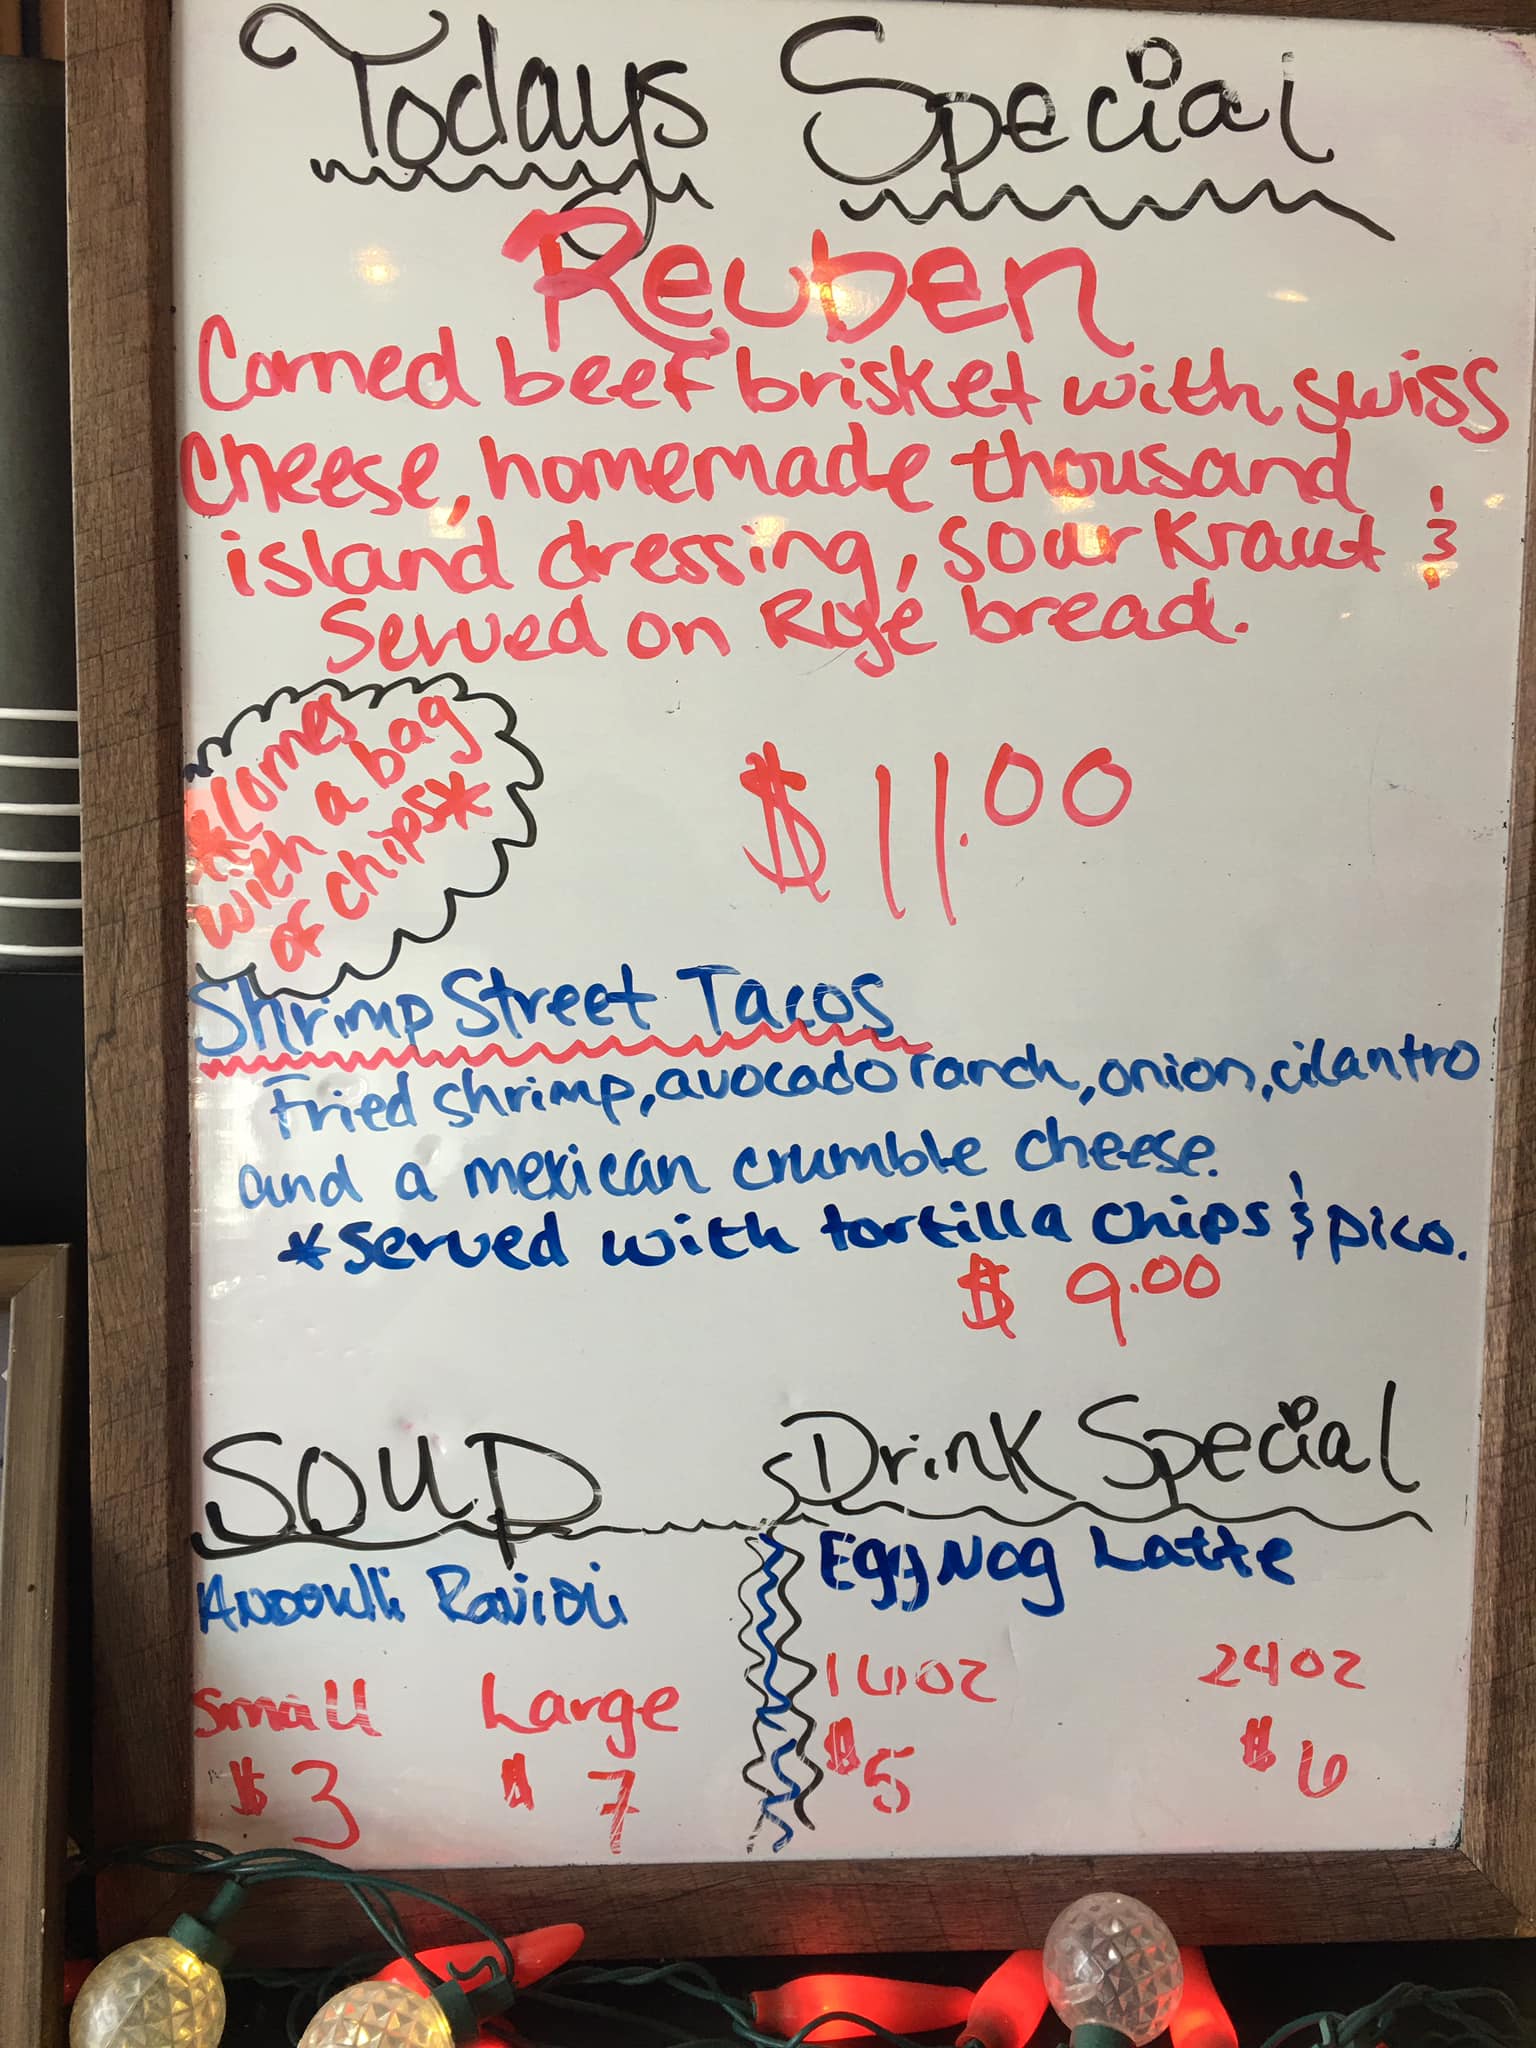 Todays Special
Reuben
Corned beef brisket with swiss
cheese, homemade thousand
island dressing, sour Kraut &
Served on Rye bread.
*Comes
with a bag
of chips*
$11.00
Shrimp Street Tacos
Fried shrimp, avocado ranch, onion, cilantro
and a mexican crumble cheese.
*served with tortilla chips & pico.
$ 9.00
SOUP
Drink Special
Ravioli
Egg Nog Latte
Small Large
$3 $7
16oz 24oz
$5 $6